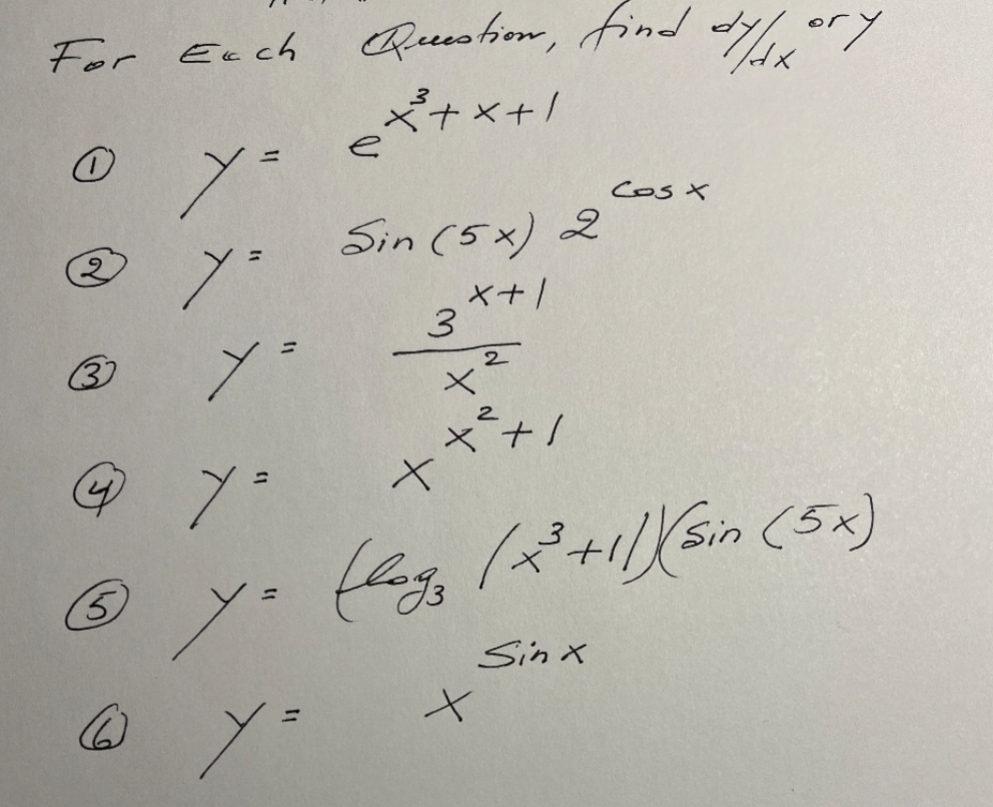 For Each Question, find dy/dx or y
① y = e^{x^3+x+1}
② y = Sin (5x) 2^{cos x}
③ y = \frac{3^{x+1}}{x^2}
④ y = x^{x^2+1}
⑤ y = (log_3 (x^3+1))(Sin (5x)
⑥ y = x^{Sin x}